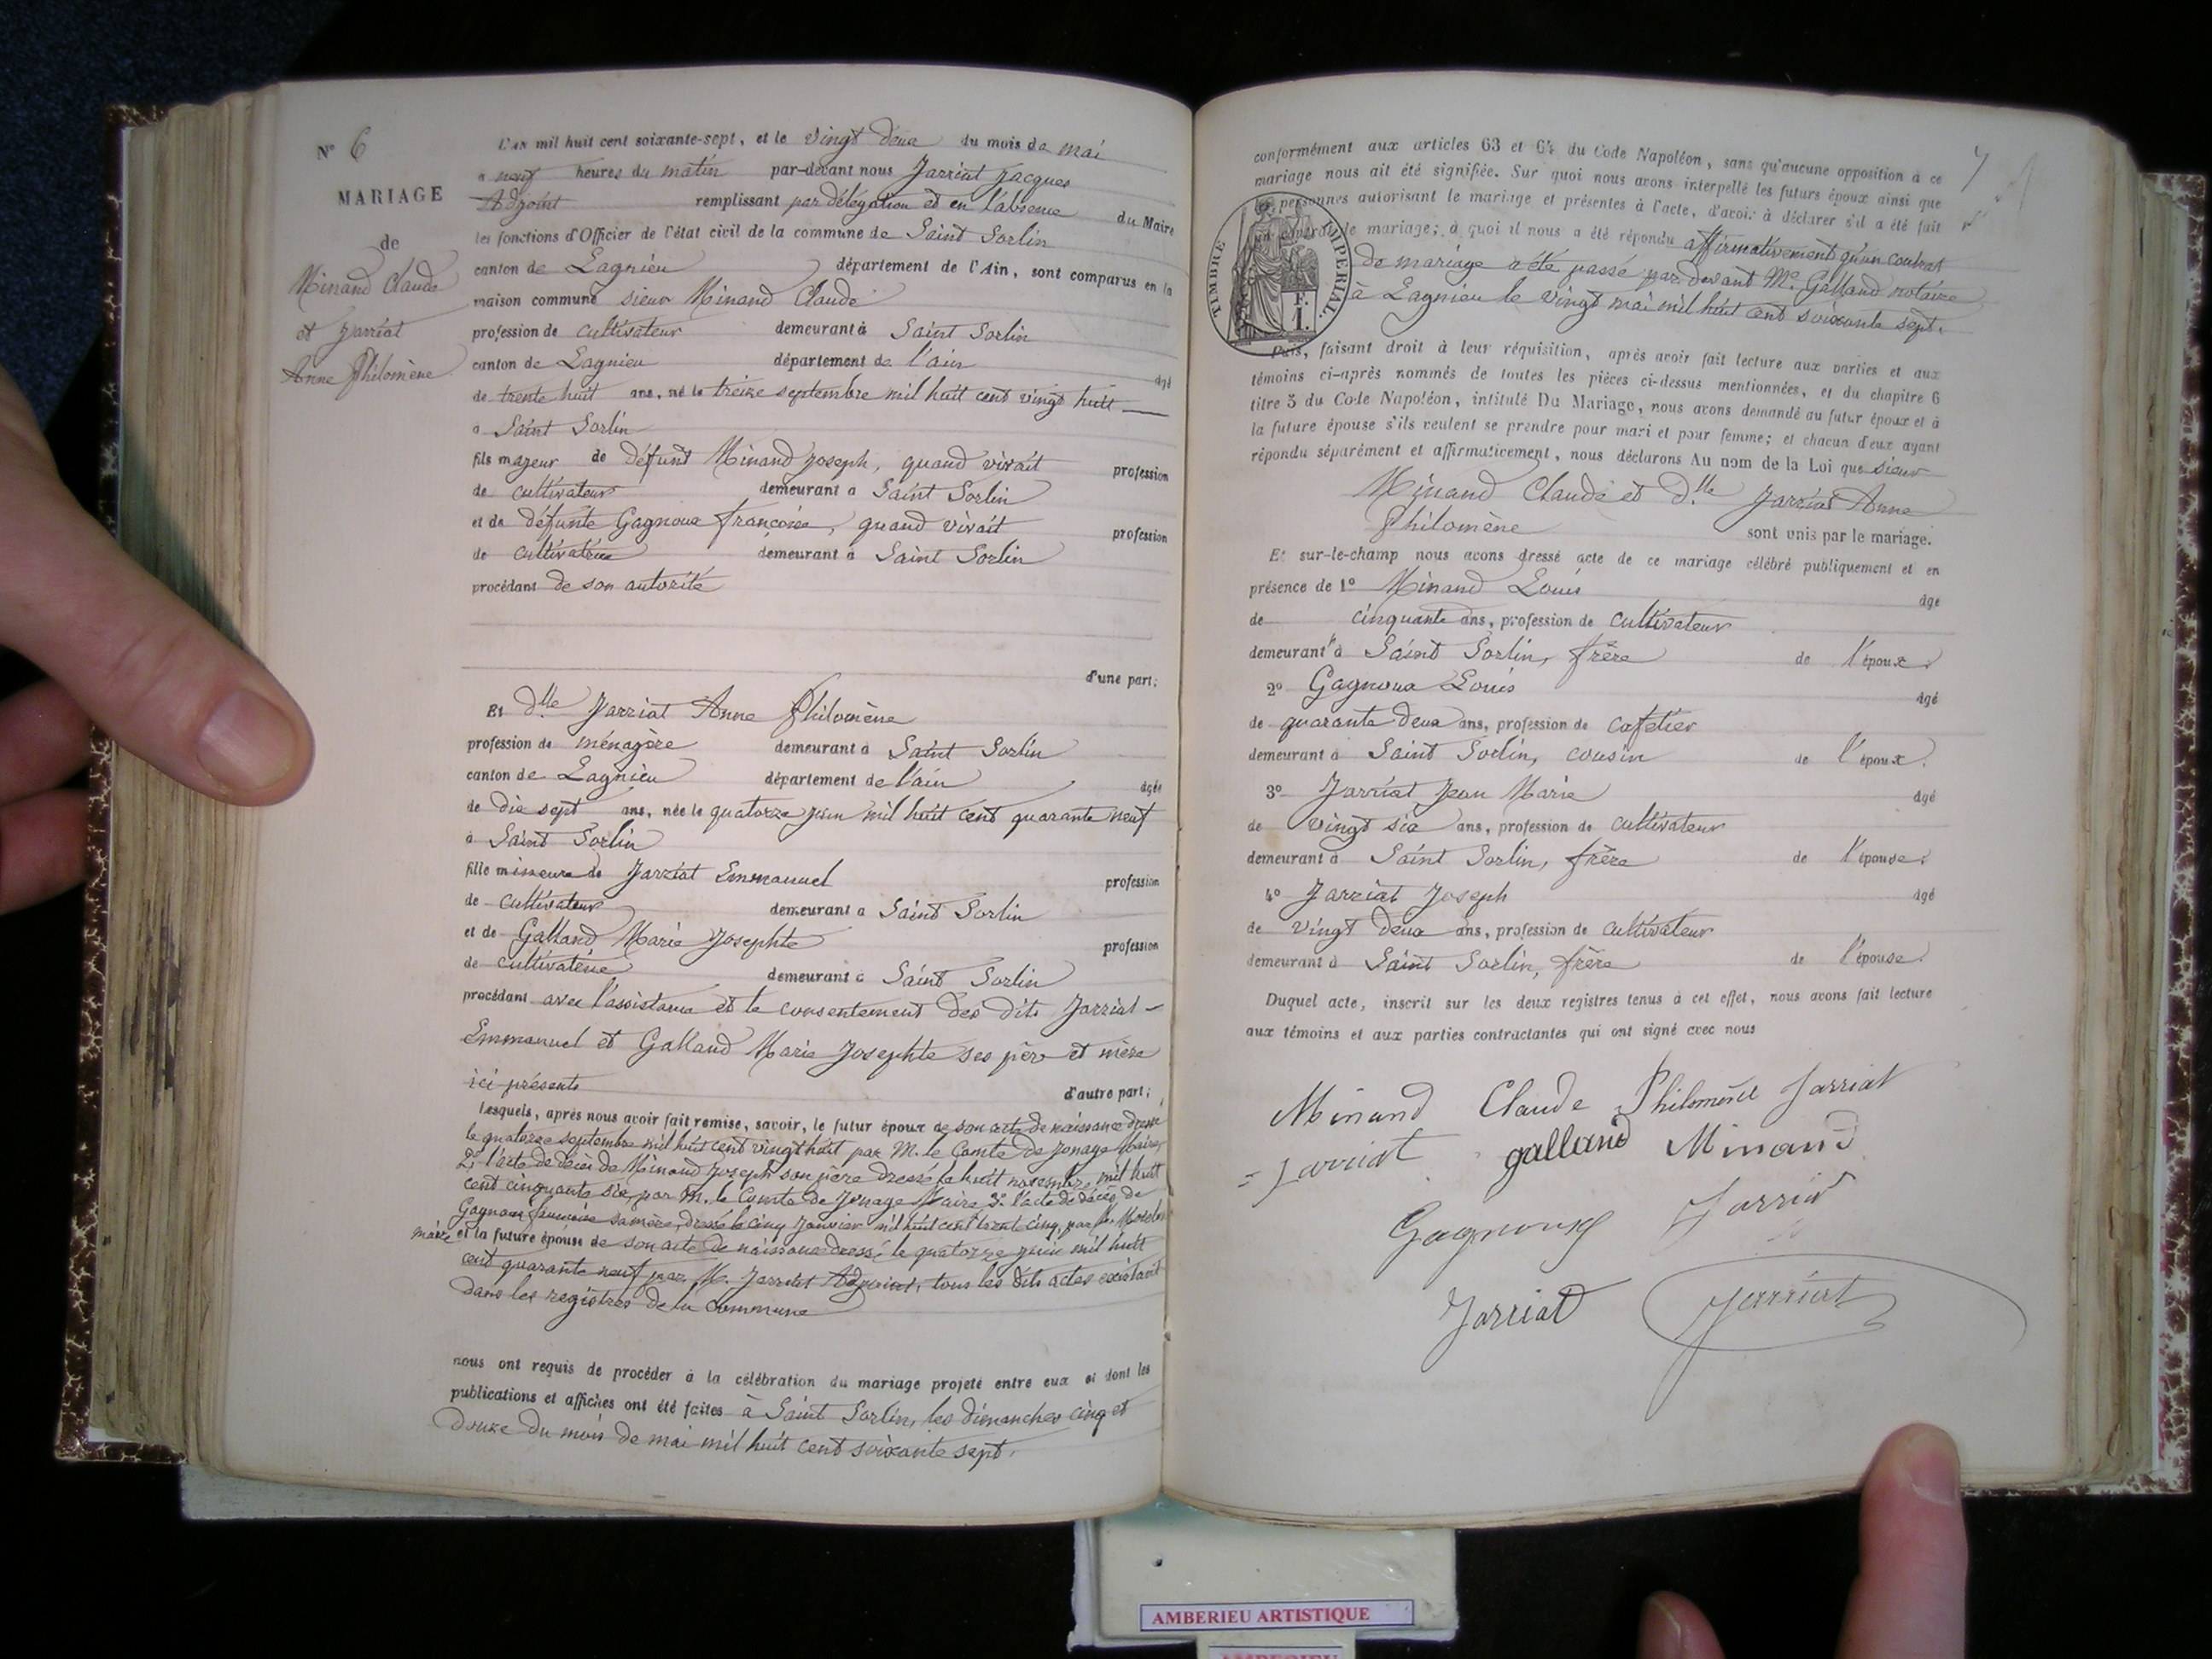 N° 6
MARIAGE
de
Minand Claude
et Jarriat
Anne Philomène
L'an mil huit cent soixante-sept, et le vingt deux du mois de mai
a neuf heures du matin par-devant nous Jarriat Jacques
Adjoint remplissant par délégation et en l'absence du Maire
les fonctions d'Officier de l'état civil de la commune de Saint Sorlin
canton de Lagnieu département de l'Ain, sont comparus en la
maison commune sieur Minand Claude
profession de cultivateur demeurant à Saint Sorlin
canton de Lagnieu département de l'ain âgé
de trente huit ans, né le treize septembre mil huit cent vingt huit
à Saint Sorlin
fils majeur de défunt Minand Joseph, quand vivait profession
de cultivateur demeurant a Saint Sorlin
et de défunte Gagnoux françoise, quand vivait profession
de cultivatrice demeurant à Saint Sorlin
procédant de son autorité
d'une part;
Et dlle Jarriat Anne Philomène
profession de ménagère demeurant à Saint Sorlin
canton de Lagnieu département de l'ain âgée
de dix sept ans, née le quatorze juin mil huit cent quarante neuf
à Saint Sorlin
fille mineure de Jarriat Emmanuel profession
de cultivateur demeurant a Saint Sorlin
et de Galland Marie Josephte profession
de cultivatrice demeurant à Saint Sorlin
procédant avec l'assistance et le consentement des dits Jarriat
Emmanuel et Galland Marie Josephte ses père et mère
ici présents d'autre part;
Lesquels, après nous avoir fait remise, savoir, le futur époux de son acte de naissance dressé
le quatorze septembre mil huit cent vingt huit par M. le Comte de Jonage Maire,
2° l'acte de décès de Minand Joseph son père dressé le huit novembre mil huit
cent cinquante six, par M. le Comte de Jonage Maire, 3° l'acte de décès de
Gagnoux françoise sa mère, dressé le cinq Janvier mil huit cent trente cinq, par
maire et la future épouse de son acte de naissance dressé le quatorze juin mil huit
cent quarante neuf par M. Jarriat Adjoint, tous les dits actes existant
dans les registres de la commune
nous ont requis de procéder à la célébration du mariage projeté entre eux et dont les
publications et affiches ont été faites à Saint Sorlin, les dimanches cinq et
douze du mois de mai mil huit cent soixante sept.
7
conformément aux articles 63 et 64 du Code Napoléon, sans qu'aucune opposition à ce
mariage nous ait été signifiée. Sur quoi nous avons interpellé les futurs époux ainsi que
les personnes autorisant le mariage et présentes à l'acte, d'avoir à déclarer s'il a été fait
un contrat de mariage; à quoi il nous a été répondu affirmativement qu'un contrat
de mariage a été passé par devant Me Galland notaire
à Lagnieu le vingt mai mil huit cent soixante sept.
TIMBRE IMPERIAL.
F.
1.
Puis, faisant droit à leur réquisition, après avoir fait lecture aux parties et aux
témoins ci-après nommés de toutes les pièces ci-dessus mentionnées, et du chapitre 6
titre 5 du Code Napoléon, intitulé Du Mariage, nous avons demandé au futur époux et à
la future épouse s'ils veulent se prendre pour mari et pour femme; et chacun d'eux ayant
répondu séparément et affirmativement, nous déclarons Au nom de la Loi que sieur
Minand Claude et Dlle Jarriat Anne
Philomène sont unis par le mariage.
Et sur-le-champ nous avons dressé acte de ce mariage célébré publiquement et en
présence de 1° Minand Louis âgé
de cinquante ans, profession de cultivateur
demeurant à Saint Sorlin, frère de l'époux.
2° Gagnoux Louis âgé
de quarante deux ans, profession de cafetier
demeurant à Saint Sorlin, cousin de l'époux.
3° Jarriat Jean Marie âgé
de vingt six ans, profession de cultivateur
demeurant à Saint Sorlin, frère de l'épouse.
4° Jarriat Joseph âgé
de vingt deux ans, profession de cultivateur
demeurant à Saint Sorlin, frère de l'épouse.
Duquel acte, inscrit sur les deux registres tenus à cet effet, nous avons fait lecture
aux témoins et aux parties contractantes qui ont signé avec nous
Minand Claude Philomène Jarriat
Jarriat galland Minand
Gagnoux Jarriat
Jarriat Jarriat
AMBERIEU ARTISTIQUE
AMBERIEU